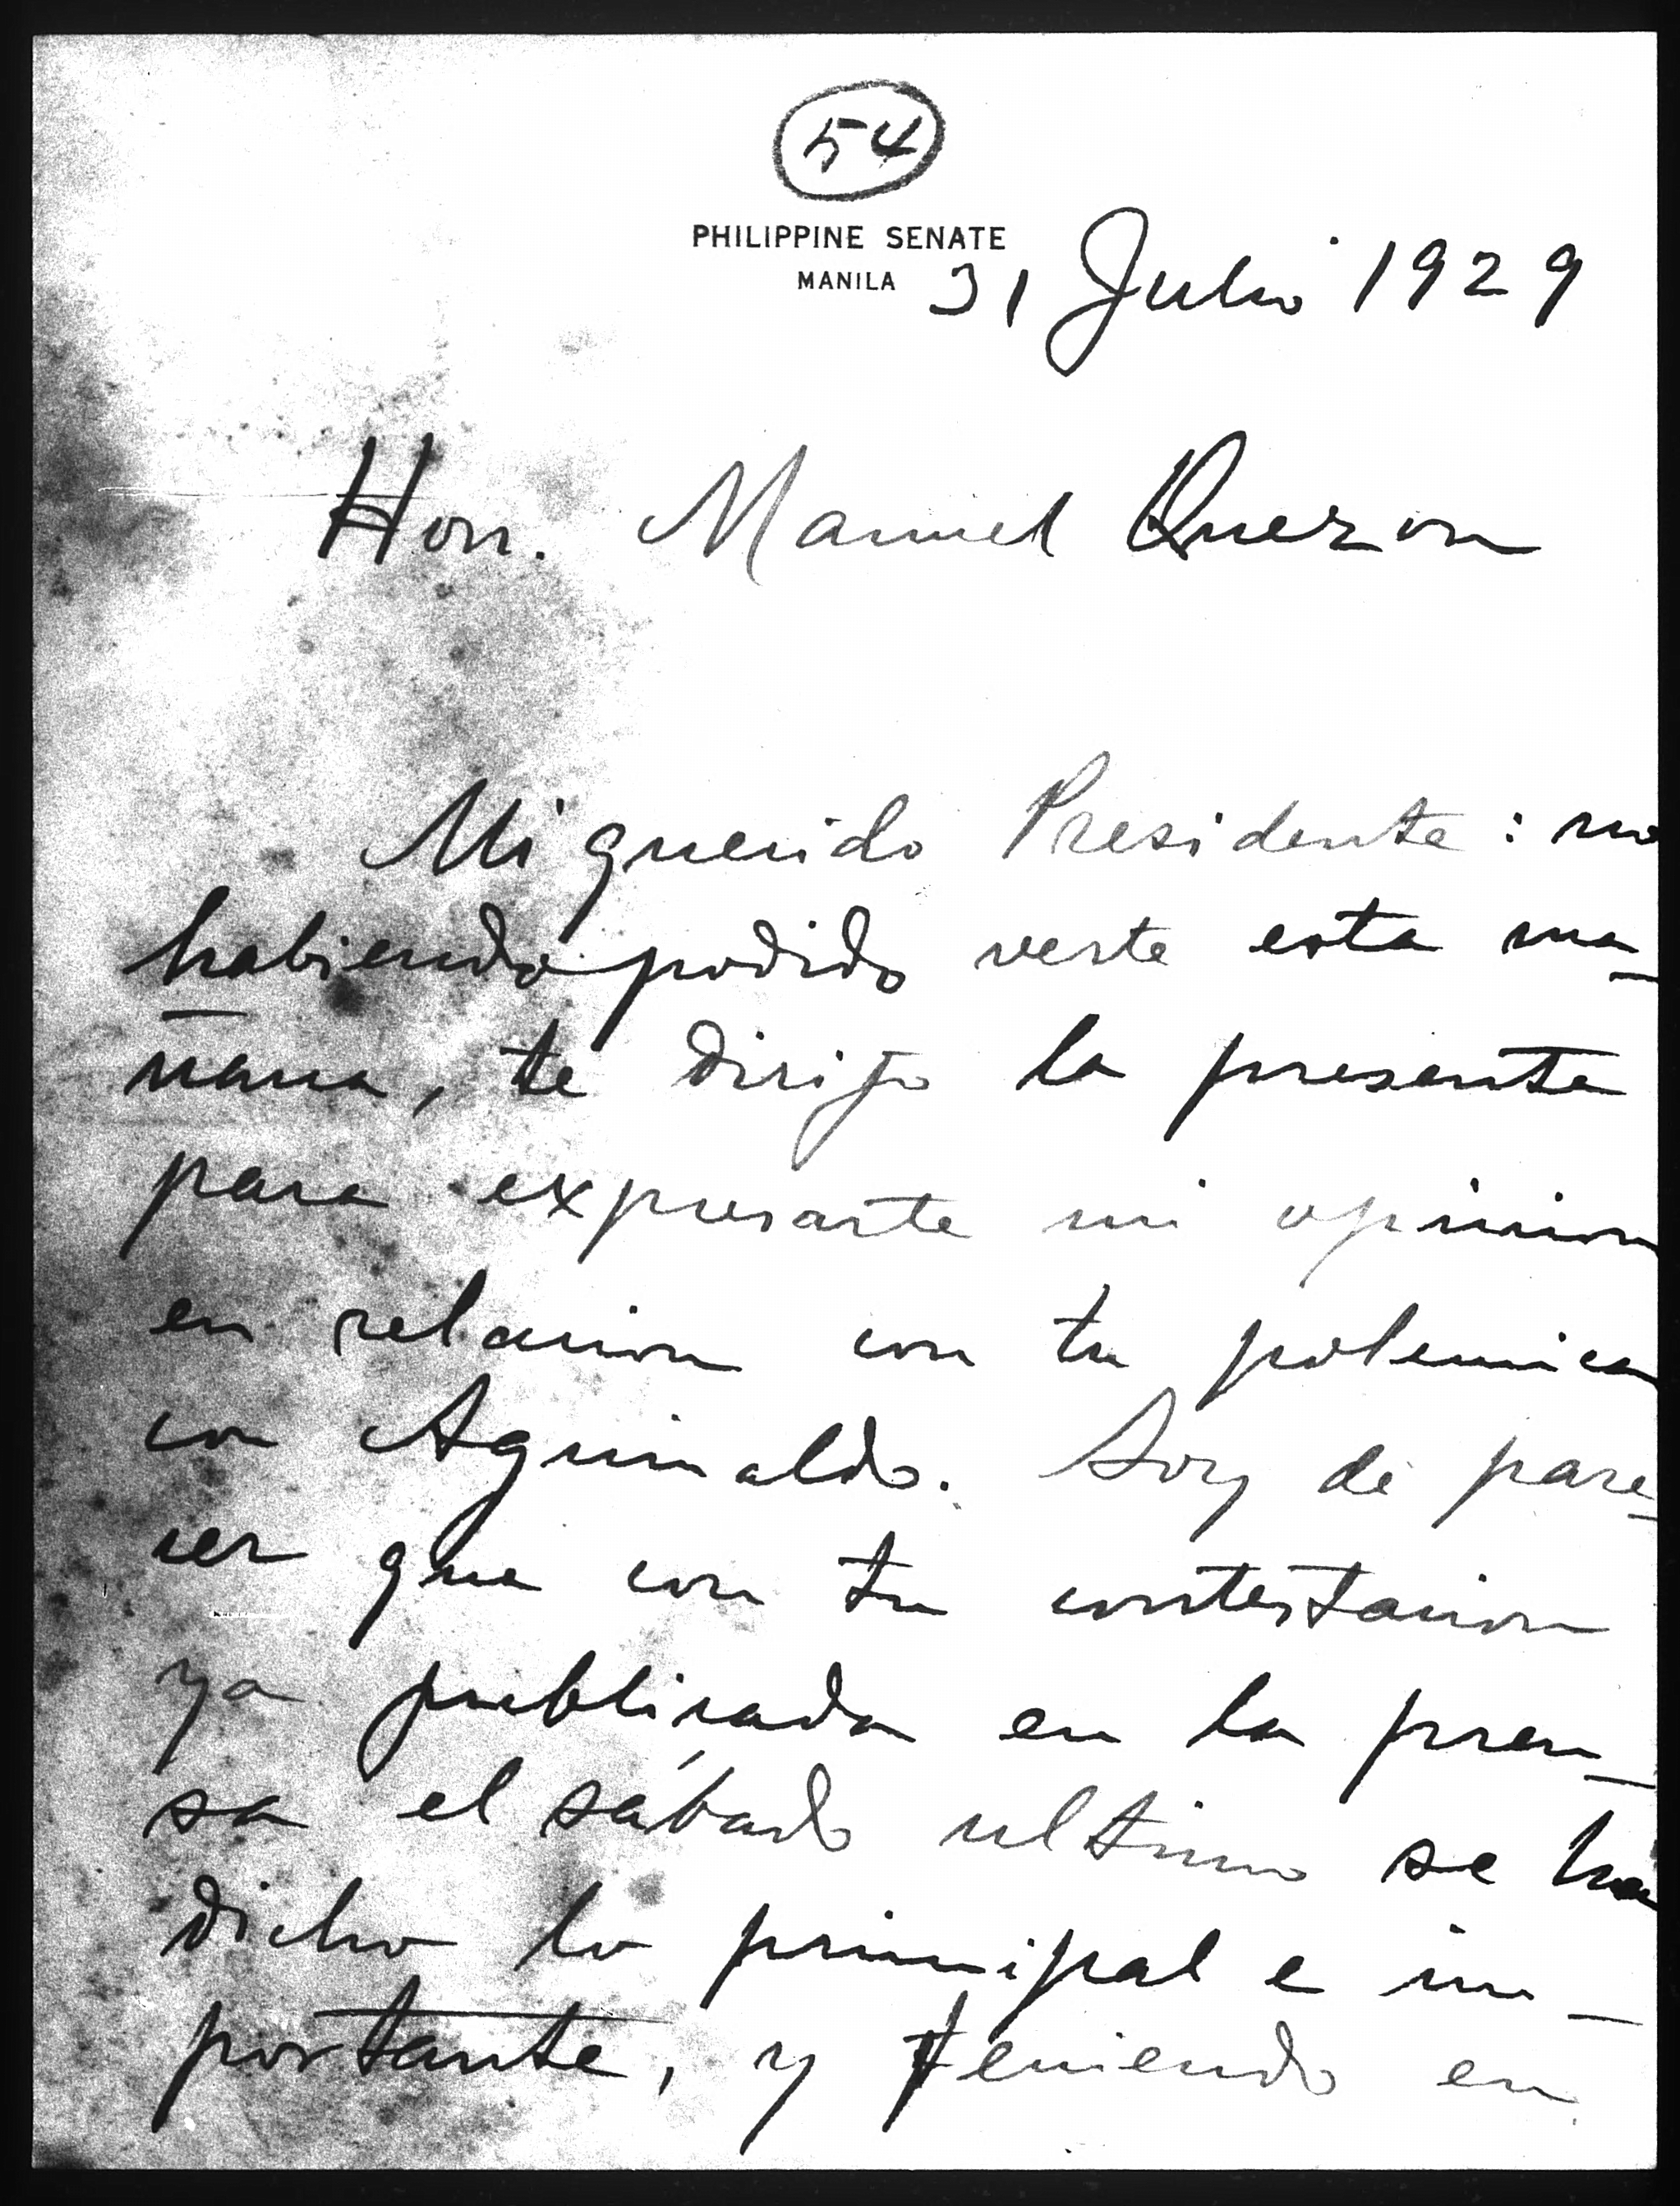 54
PHILIPPINE SENATE
MANILA 31 Julio 1929
Hon. Manuel Quezon
Mi querido Presidente: no
habiendo podido verte esta ma-
ñana, te dirijo la presente
para expresarte mi opinion
en relacion con tu polemica
con Aguinaldo. Soy de pare-
cer que con tu contestacion
ya publicada en la pren-
sa el sábado ultimo se ha
dicho lo principal e im-
portante, y teniendo en